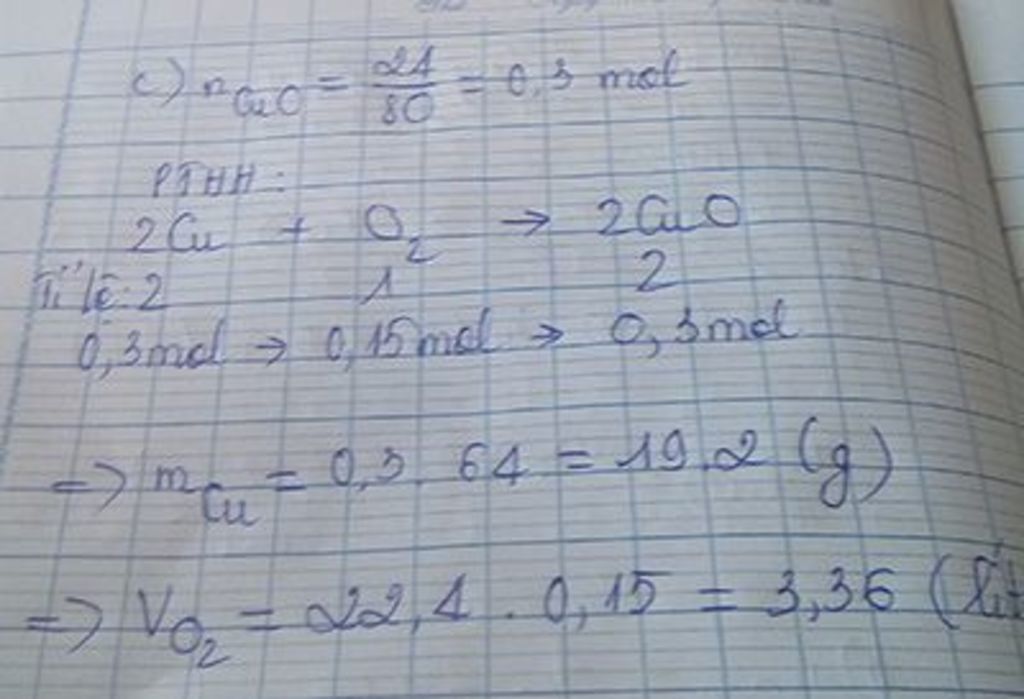 c) nCuO = 24/80 = 0,3 mol
PTHH:
2Cu + O2 → 2CuO
Tỉ lệ: 2 1 2
0,3mol → 0,15mol → 0,3mol
=> mCu = 0,3. 64 = 19,2 (g)
=> VO2 = 22,4 . 0,15 = 3,36 (lít